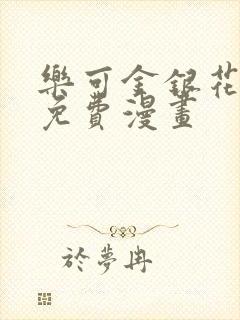 樂可金銀花
免費漫畫
於夢冉